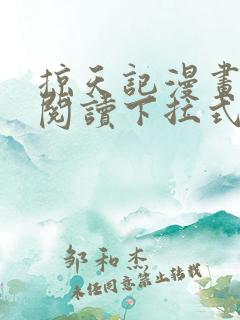 掠天記漫畫
閱讀下拉式
鄒和杰
未経同意禁止转載